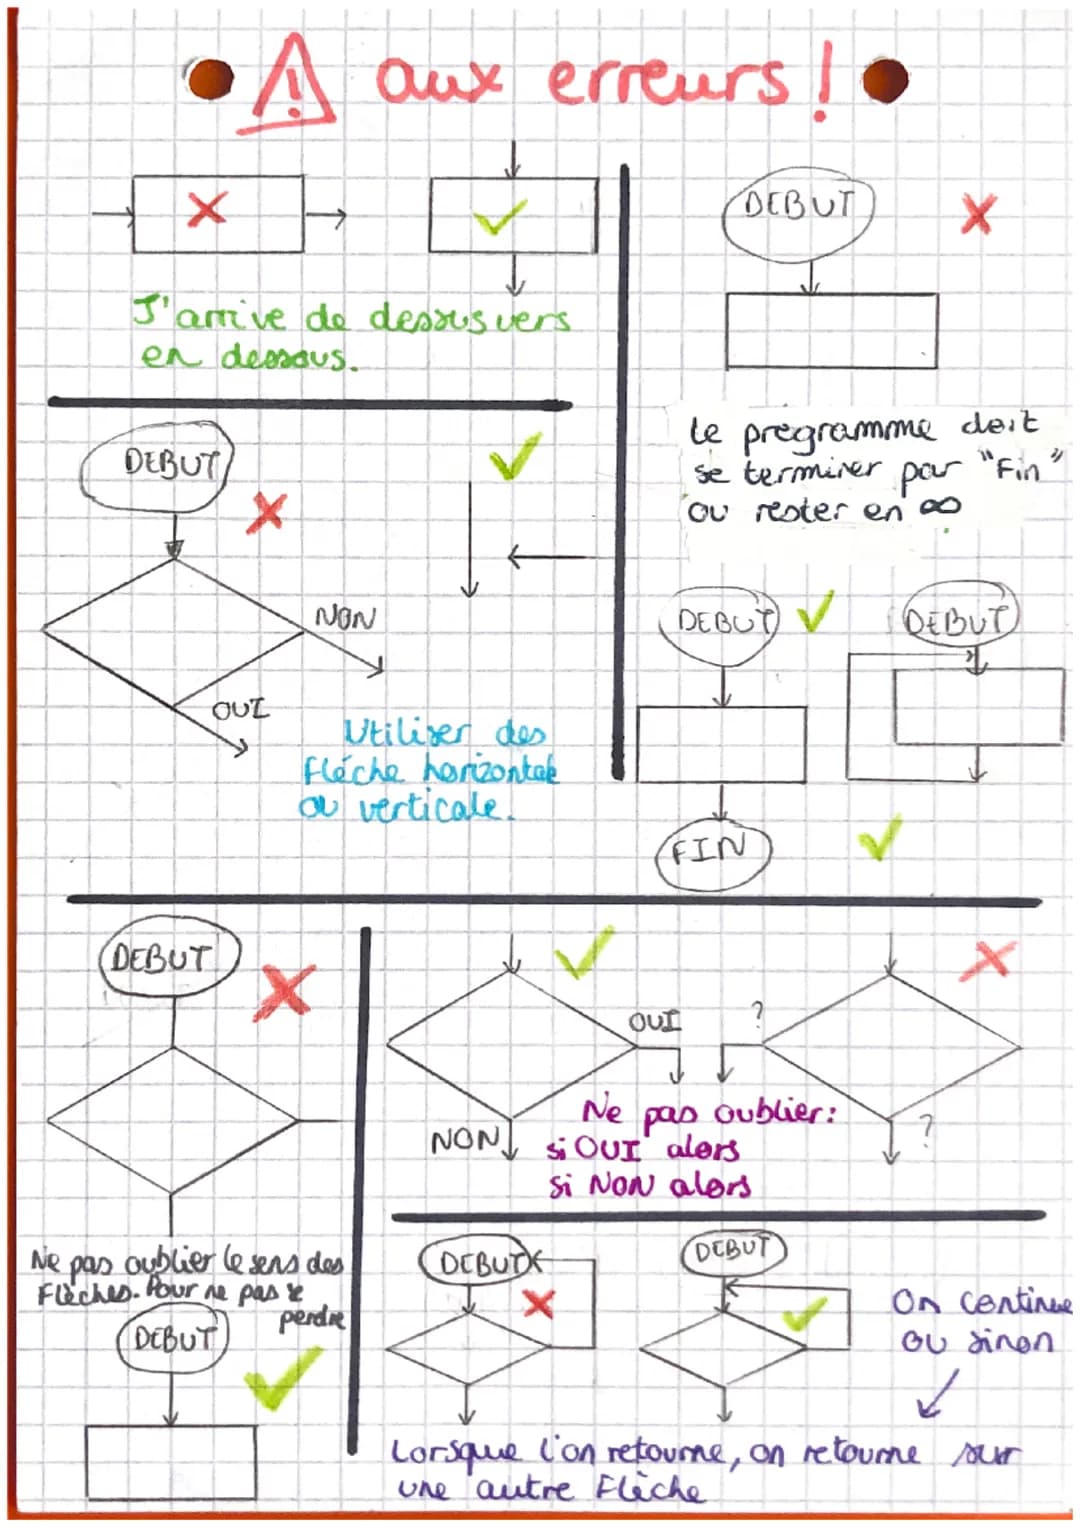 ! aux erreurs !
J'arrive de dessus vers
en dessous.
DEBUT
Le programme doit
se terminer par "Fin"
ou rester en ∞
DEBUT
NON
OUI
Utiliser des
flèche horizontale
ou verticale.
DEBUT
DEBUT
FIN
DEBUT
Ne pas oublier le sens des
Flèches. Pour ne pas se
perdre
DEBUT
OUI
NON
?
?
Ne pas oublier:
si OUI alors
si NON alors
DEBUT
DEBUT
On continue
ou sinon
Lorsque l'on retourne, on retourne sur
une autre Flèche